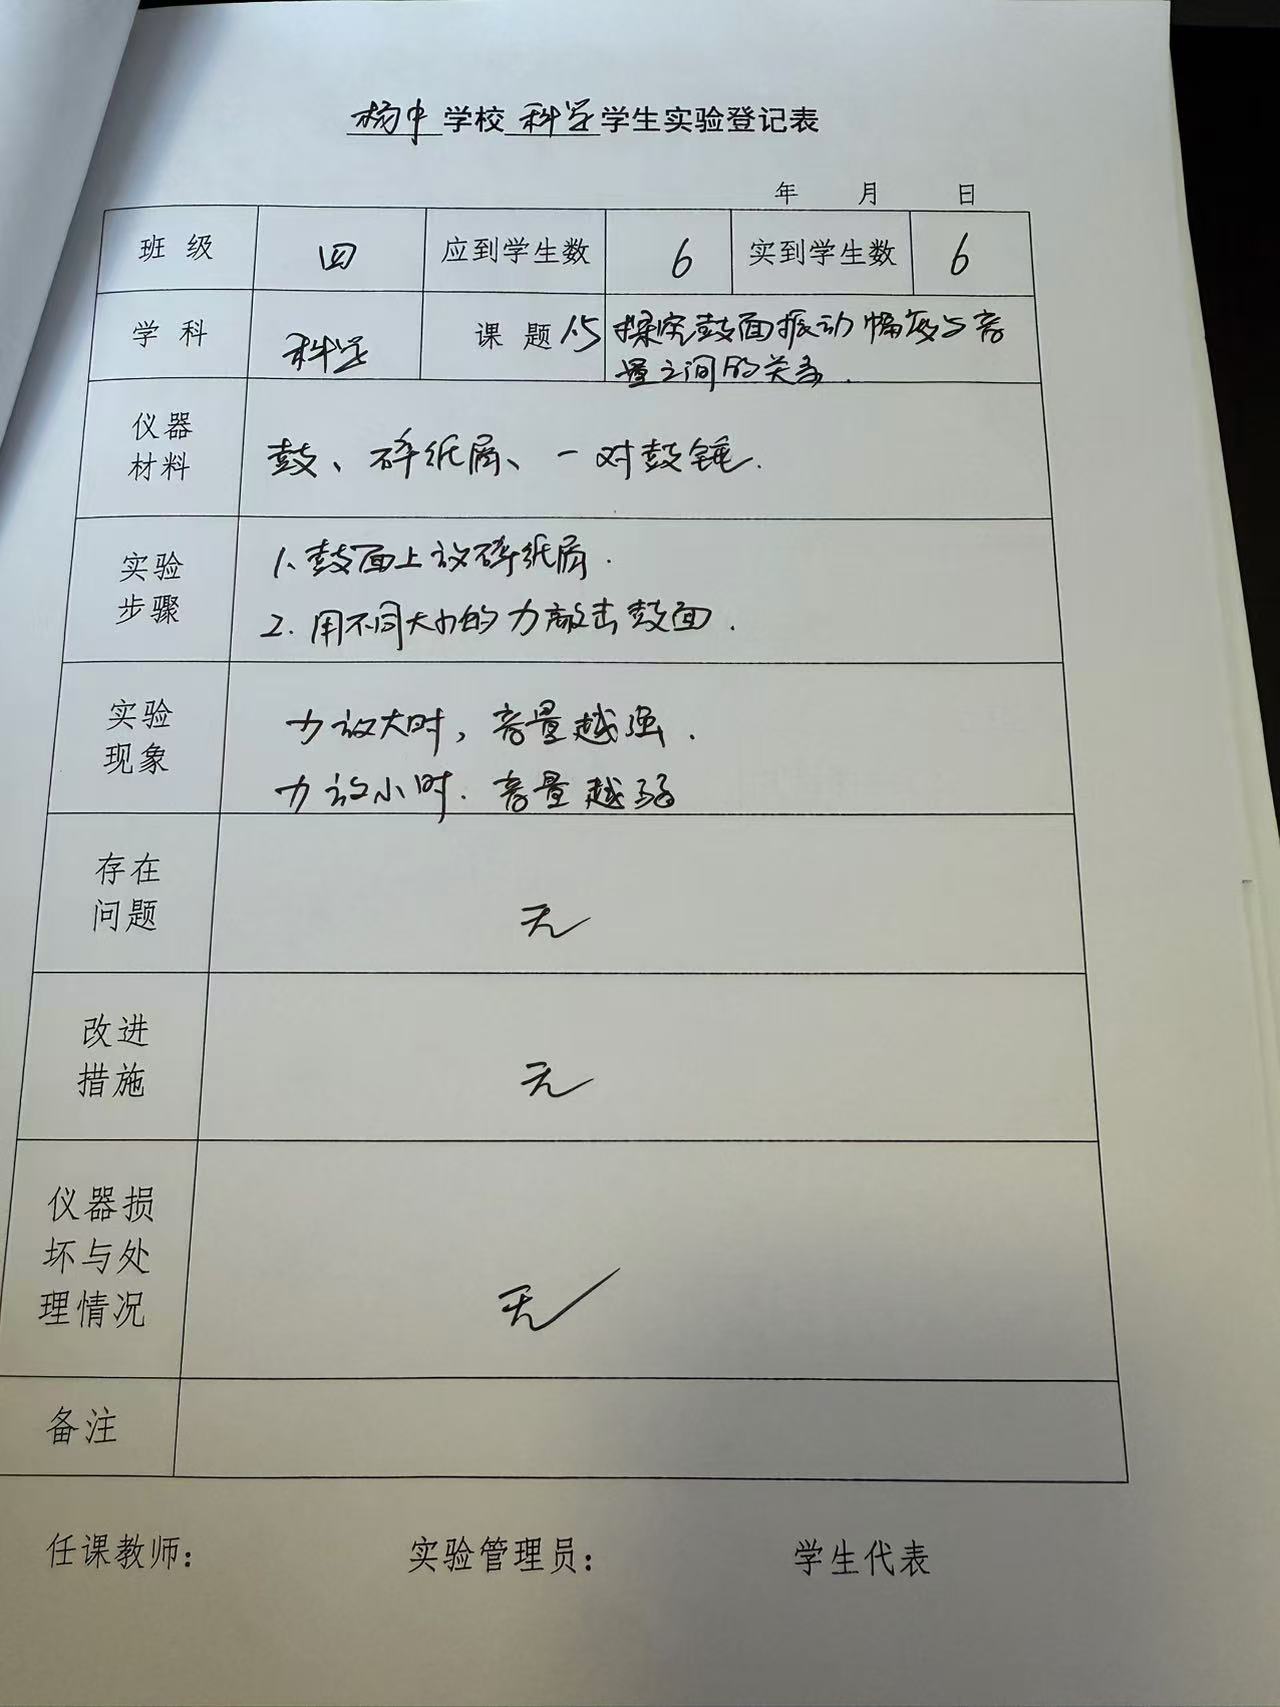 杨中学校科学学生实验登记表
年 月 日
班 级 四 应到学生数 6 实到学生数 6
学 科 科学 课 题 1.5 探究鼓面振动幅度与音
量之间的关系.
仪器
材料
鼓、碎纸屑、一对鼓锤.
实验
步骤
1. 鼓面上放碎纸屑.
2. 用不同大小的力敲击鼓面.
实验
现象
力放大时,音量越强.
力放小时.音量越弱
存在
问题
无
改进
措施
无
仪器损
坏与处
理情况
无
备注
任课教师: 实验管理员: 学生代表